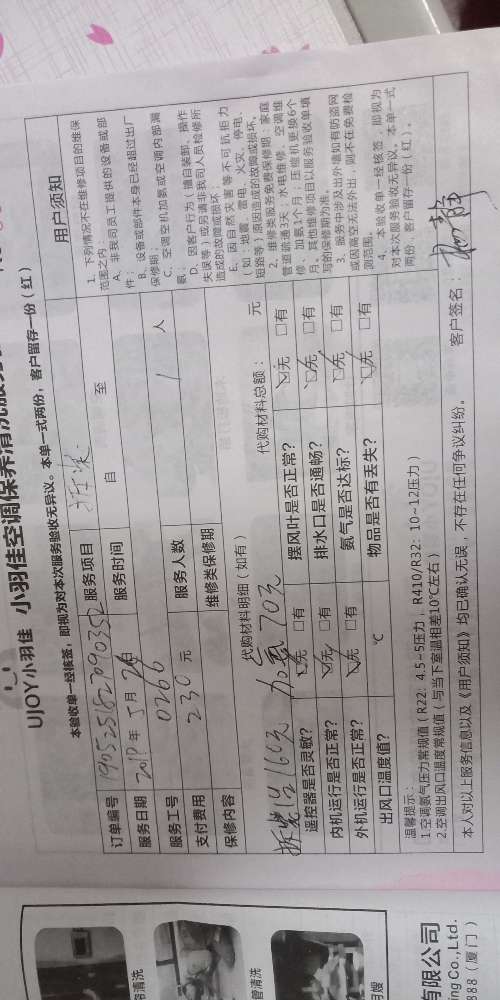 UJOY小羽佳 小羽佳空调保养清洗服务
本验收单一经核签，即视为对本次服务验收无异议。本单一式两份，客户留存一份（红）
订单编号 服务项目 拆装
服务日期 2019年5月26日 服务时间 自 至
服务工号 0266 服务人数 1 人
支付费用 230 元 维修类保修期
保修内容
代购材料明细（如有） 代购材料总额： 元
拆装1台160元 加氟70元
遥控器是否灵敏？ 无 有 摆风叶是否正常？ 无 有
内机运行是否正常？ 无 有 排水口是否通畅？ 无 有
外机运行是否正常？ 无 有 氨气是否达标？ 无 有
出风口温度值？ ℃ 物品是否有丢失？ 无 有
温馨提示：
1空调氨气压力常规值（R22：4.5~5压力，R410/R32：10~12压力）
2空调出风口温度常规值（与当下室温相差10℃左右）
本人对以上服务信息以及《用户须知》均已确认无误，不存在任何争议纠纷。 客户签名：
用户须知
1、下列情况不在维修项目的维保
范围之内：
A、非我司员工提供的设备或部
件；
B、设备或部件本身已经超过出厂
保修期
C、空调空机加氨或空调内部漏
氨；
D、因客户行为（擅自装卸、操作
失误等）或另请非我司人员检修所
造成的故障或损坏；
E、因自然灾害等不可抗拒力
（如：地震、雷电、火灾、停电、
短路等）原因造成的故障或损坏。
2、维修类服务免费保修期：家庭
管道疏通3天；水电维修、空调维
修、加氨1个月；压缩机更换6个
月。其他维修项目以服务验收单填
写的保修期为准。
3、服务中涉及出外墙如有防盗网
或因高空无法外出，则不在免费检
测范围。
4、本验收单一经核签，即视为
对本次服务验收无异议。本单一式
两份，客户留存一份（红）。
清洗
管清洗
月嫂
有限公司
ng Co.,Ltd.
888（厦门）